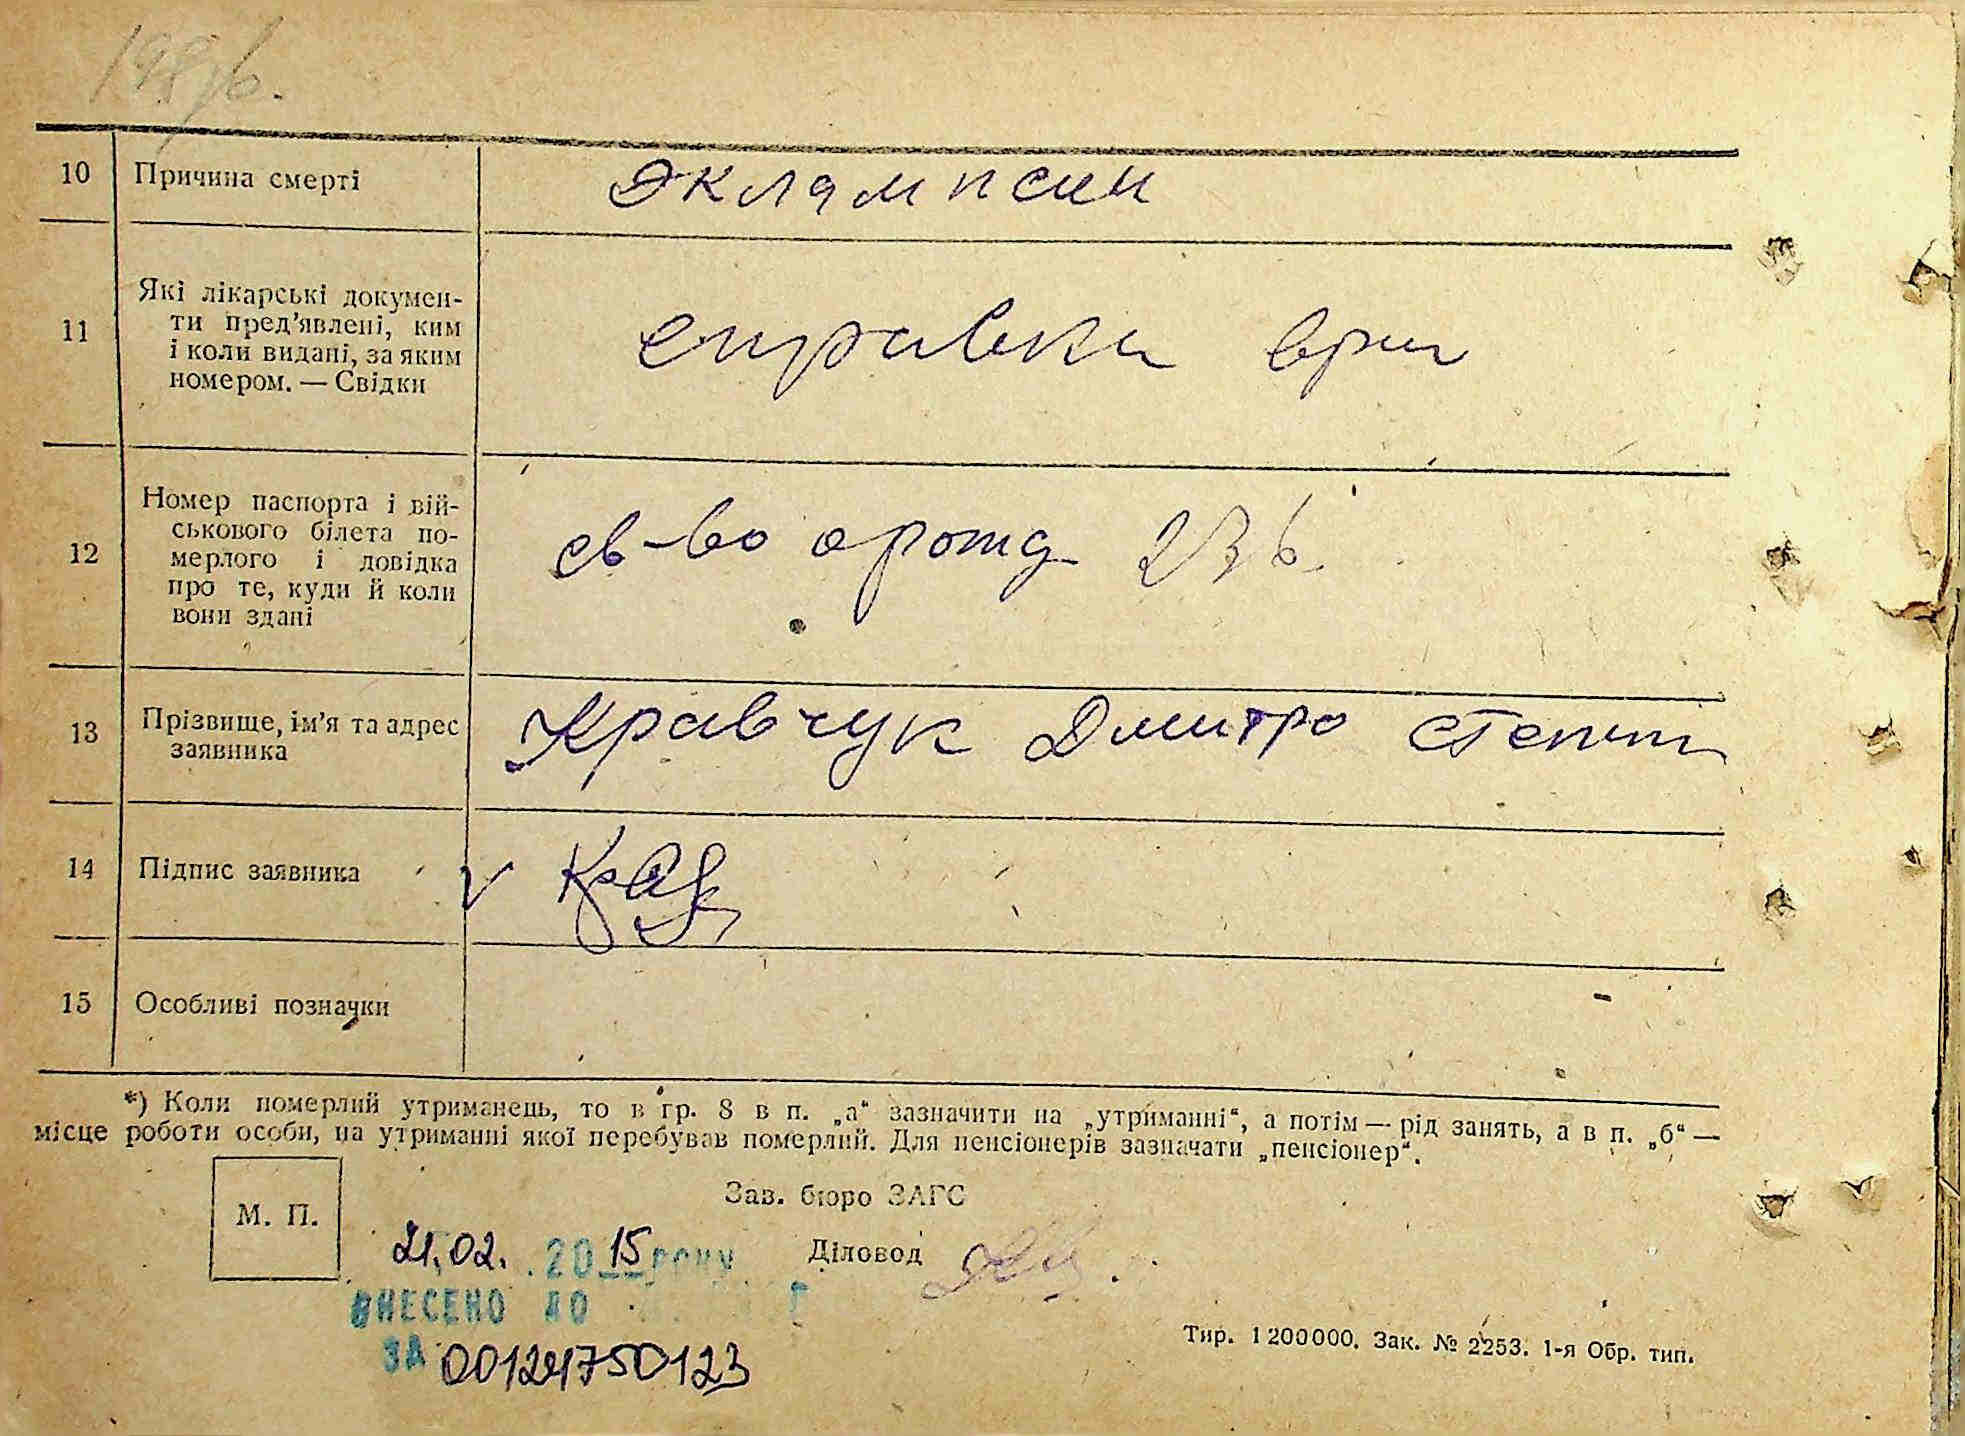 10 Причина смерті Эклямпсии
11 Які лікарські докумен-
ти пред’явлені, ким
і коли видані, за яким
номером. — Свідки
справка врач
12 Номер паспорта і вій-
ськового білета по-
мерлого і довідка
про те, куди й коли
вони здані
св-во о рожд
13 Прізвище, ім’я та адрес
заявника
Кравчук Дмитро
14 Підпис заявника
15 Особливі позначки
*) Коли померлий утриманець, то в гр. 8 в п. „а“ зазначити на „утриманні“, а потім — рід занять, а в п. „б“ —
місце роботи особи, на утриманні якої перебував померлий. Для пенсіонерів зазначати „пенсіонер“.
Зав. бюро ЗАГС
М. П.
21.02. 2015 року Діловод
ВНЕСЕНО ДО
ЗА 00121750123
Тир. 1200000. Зак. № 2253. 1-я Обр. тип.